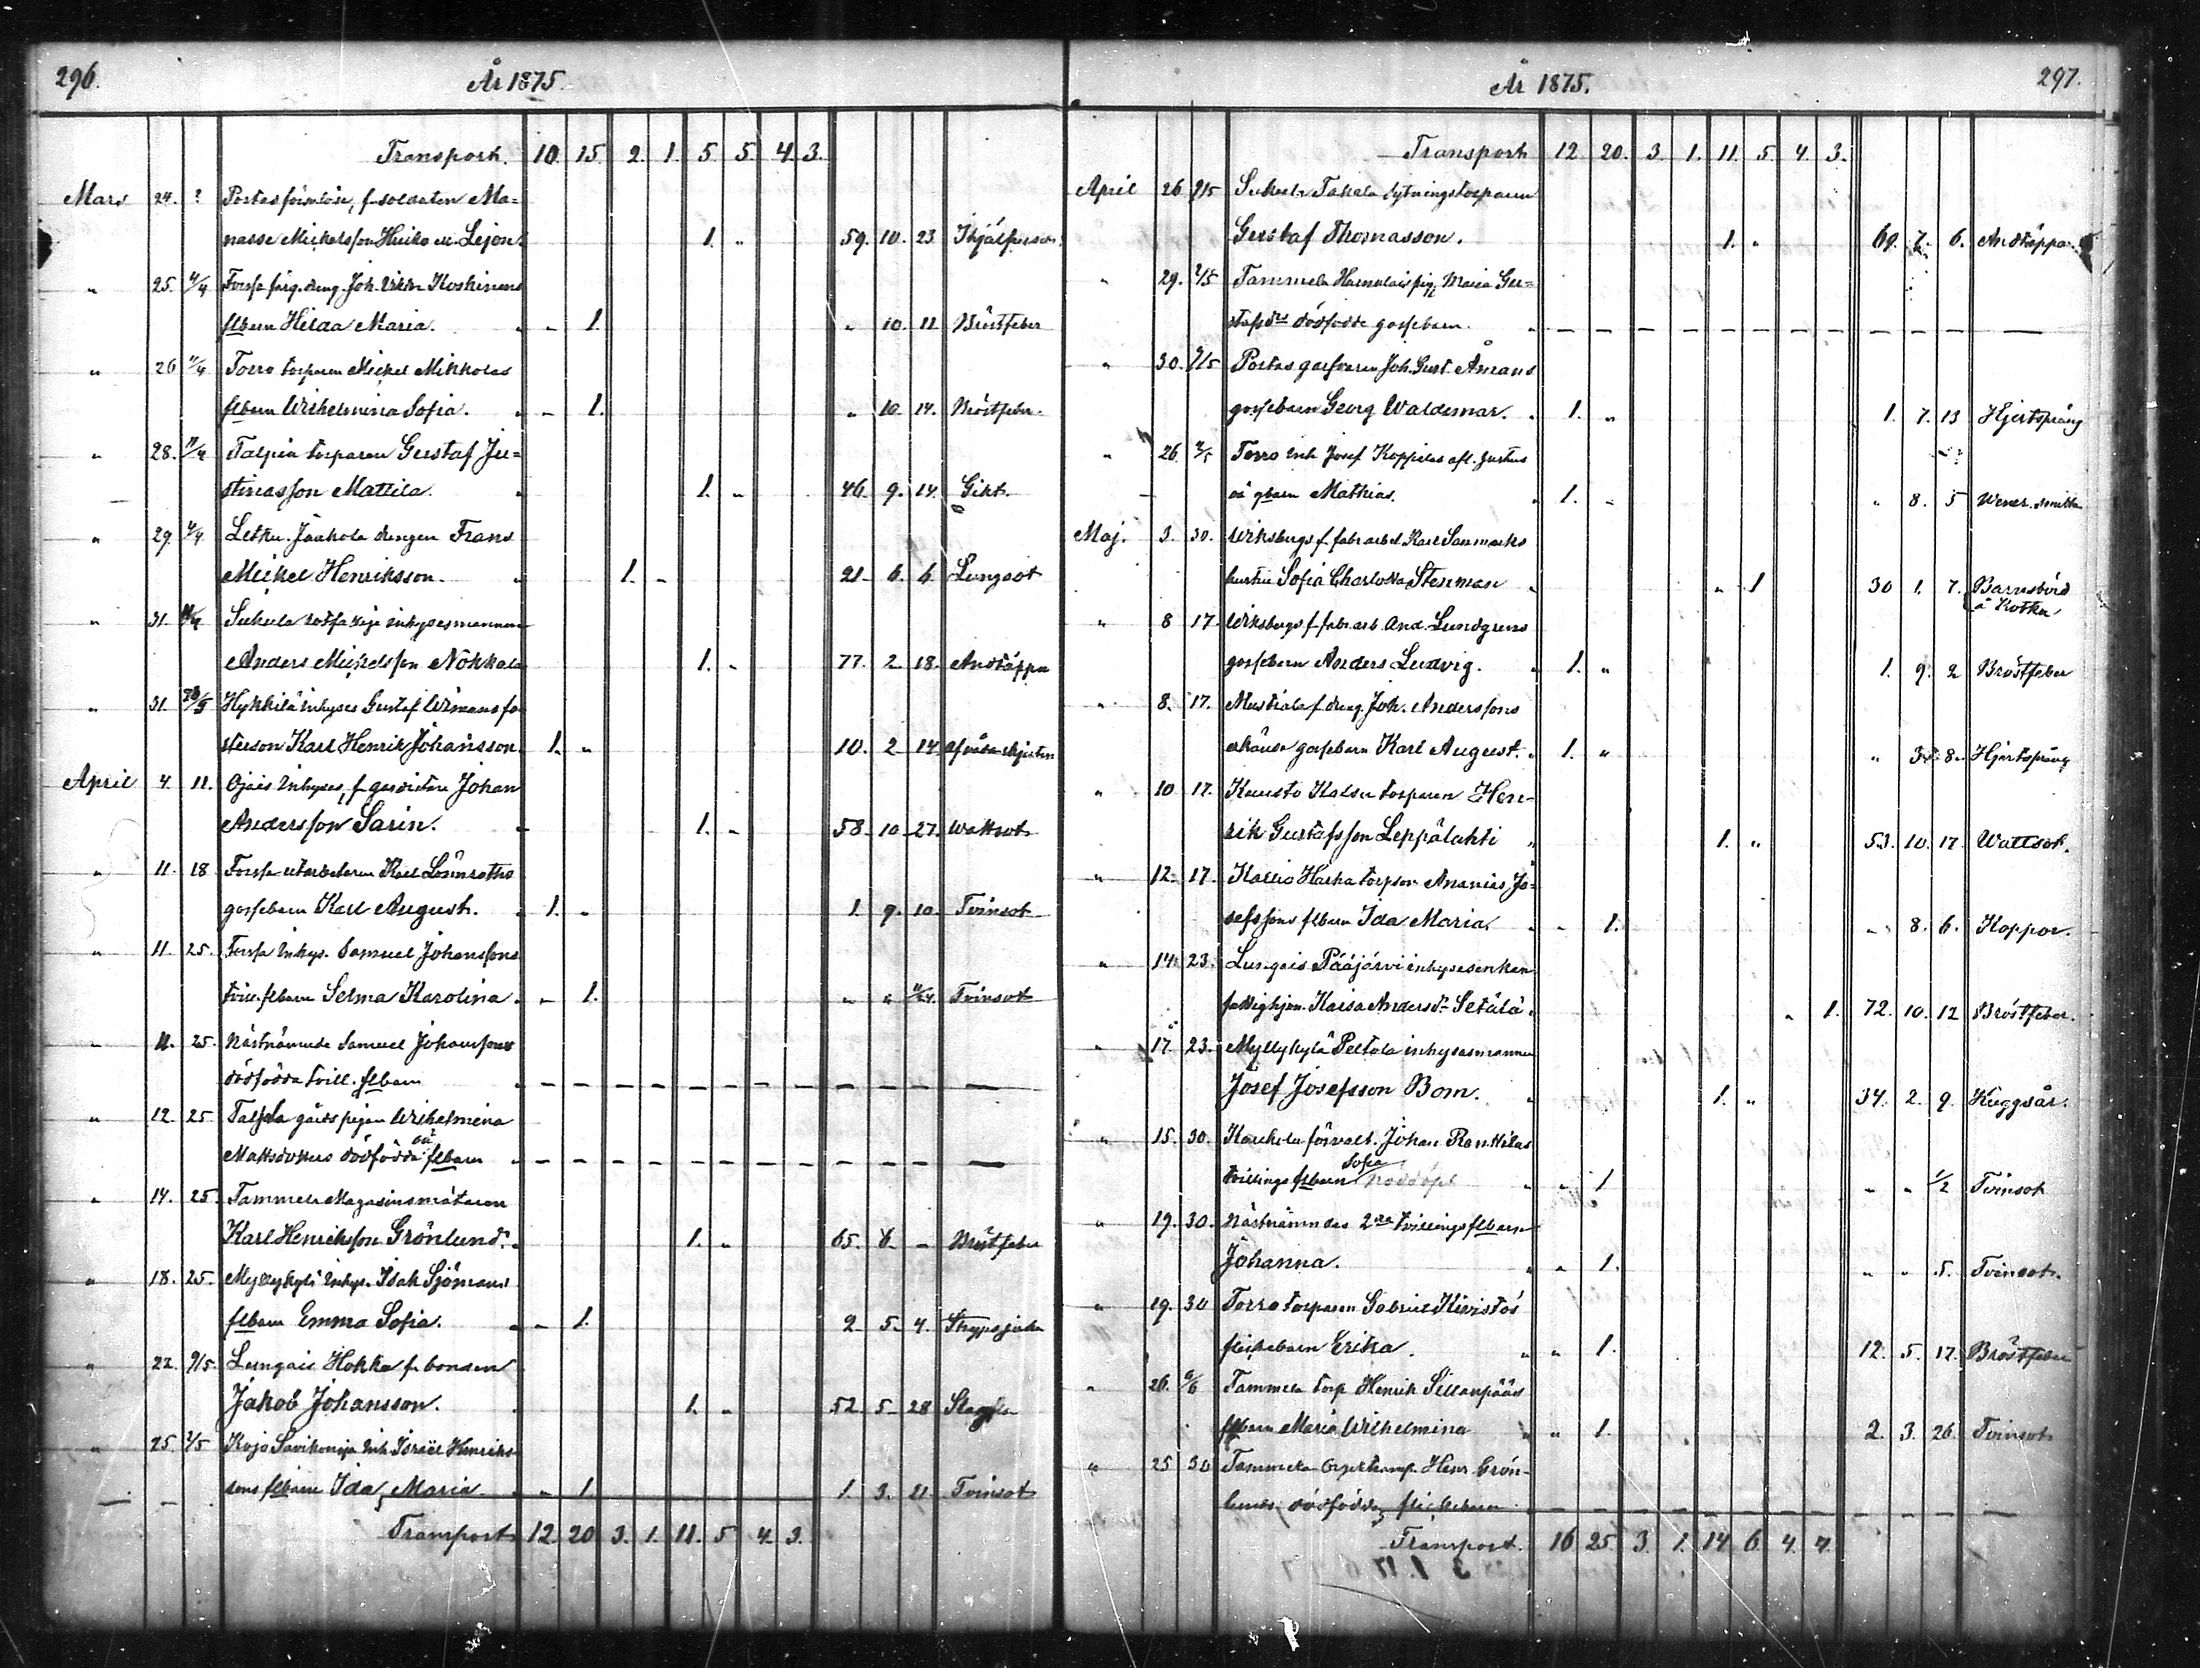 296.
År 1875.
Transport. 10. 15. 2. 1. 5. 5. 4. 3.
Mars 24. ? Portas försvlöse, f. soldaten Ma-
nasse Mickelsson Huiko el. Lejon 1. " 59. 10. 23. Ihjälfrusen
" 25. 4/4 Forssa färg. dreng. Joh. Koskinens
flbarn Hilda Maria. " - 1. " 10. 11. Bröstfeber
" 26 11/4 Torro torparen Mickel Mikkolas
flbarn Wilhelmina Sofia. " - 1. " 10. 14. Bröstfeber.
" 28. 11/4 Talpia torparen Gustaf Ju-
stinasson Mattila. " 1. " 46. 9. 14. Gikt.
" 29. 4/4 Letku Jaakola drengen Frans
Mickel Henriksson. " 1. " 21. 6. 6. Lungsot
" 31. 11/4 Sukula inhysesmannen
Anders Mickelsson Nokkala 1. " 77. 2. 18. Andtäppa
" 31. Hykkilä inhyses Gustaf Wimans fo-
sterson Karl Henrik Johansson. 1. " 10. 2. 14.
April 4. 11. Ojais inhyses, f. Johan
Andersson Sarin. " 1. " 58. 10. 27. Wattsot
" 11. 18 Forssa utarbetaren Karl Lönnroths
gossebarn Karl August. " 1. " 1. 9. 10. Tvinsot
" 11. 25. Forssa inhys. Samuel Johanssons
tvill. flbarn Selma Karolina " - 1. " " Tvinsot
" 11. 25. Näst nämnde Samuel Johanssons
dödfödda tvill. flbarn " - - - - - - - - - - -
" 12. 25 Talpia gårds pigan Wilhelmina
Mattsdotters dödfödda oä flbarn " - - - - - - - - - - -
" 14. 25. Tammela Magasinsmätaren
Karl Henriksson Grönlund. " 1. " 65. 6. - Bröstfeber
" 18. 25. Myllykylä inhys. Isak Sjömans
flbarn Emma Sofia. " - 1. 2. 5. 4. Strypsjuka
" 22. 9/5. Lungais Hokka f. bonden
Jakob Johansson. " 1. " 52. 5. 28 Slag
" 25 2/5 Kojo Savikonoja inh. Israel Henriks-
sons flbarn Ida Maria " - 1. 1. 3. 21. Tvinsot
Transport 12. 20 3. 1. 11. 5 4. 3.
År 1875.
297.
Transport 12. 20. 3. 1. 11. 5. 4. 3.
April 26 9/5 Sukula Takala lytningstorparen
Gustaf Thomasson. 1. " 69. 7. 6. Andtäppa.
" 29. 2/5 Tammela pig. Maria Gu-
stafsdrs dödfödde gossebarn. " - - - - - - - - - - -
" 30. 9/5 Portas garfvaren Joh. Gust. Åmans
gossebarn Georg Waldemar. " 1. " 1. 7. 13 Hjertsprång
" 26. Torro inh. Josef Koppilas afl. hustrus
oä gbarn Mathias. " 1. " " 8. 5 Wener. smitta
Maj. 3. 30. Wiksbergs f. fabr. arbet. Karl Sanmarks
hustru Sofia Charlotta Stenman " " 1 30 1. 7. Barnsbörd
å Kotka
" 8 17. Wiksbergs f. fabr. arb. And. Lundgrens
gossebarn Anders Ludvig. " 1. " 1. 9. 2 Bröstfeber
" 8. 17. Mustiala f. dreng. Joh. Anderssons
erkända gossebarn Karl August. " 1. " " 3. 8. Hjertsprång
" 10 17. Kaukolanen torparen Hen-
rik Gustafsson Leppälahti " 1. " 53. 10. 17. Wattsot.
" 12. 17. Kallio Harha torpson Ananias Jo-
sefssons flbarn Ida Maria. " " 1. " 8. 6. Koppor.
" 14. 23. Lungais Pääjärvi inhysesenkan
fattighjon Kaisa Andersdr Setälä. " 1. 72. 10. 12 Bröstfeber.
" 17. 23. Myllykylä Peltola inhysesmannen
Josef Josefsson Bom. " 1. " 34. 2. 9. Ryggsår.
" 15. 30. Kaukola förvalt. Johan Ranttilas
tvillings flbarn Sofia Nöddöpt " " 1 " " 1/2 Tvinsot
" 19. 30. Näst nämndes 2ra tvillings flbarn
Johanna. " " 1. " " 5. Tvinsot.
" 19. 30 Torro torparen Gabriel Kivistös
flickebarn Erika. " " 1. 12. 5. 17. Bröstfeber
" 26. 6/6 Tammela torp. Henrik Sillanpääs
flbarn Maria Wilhelmina " " 1. 2. 3. 26. Tvinsot
" 25 30 Tammela Henr. Grön-
lunds dödfödda flickebarn - - - - - - - - - - -
Transport. 16 25. 3. 1. 14. 6. 4. 4.